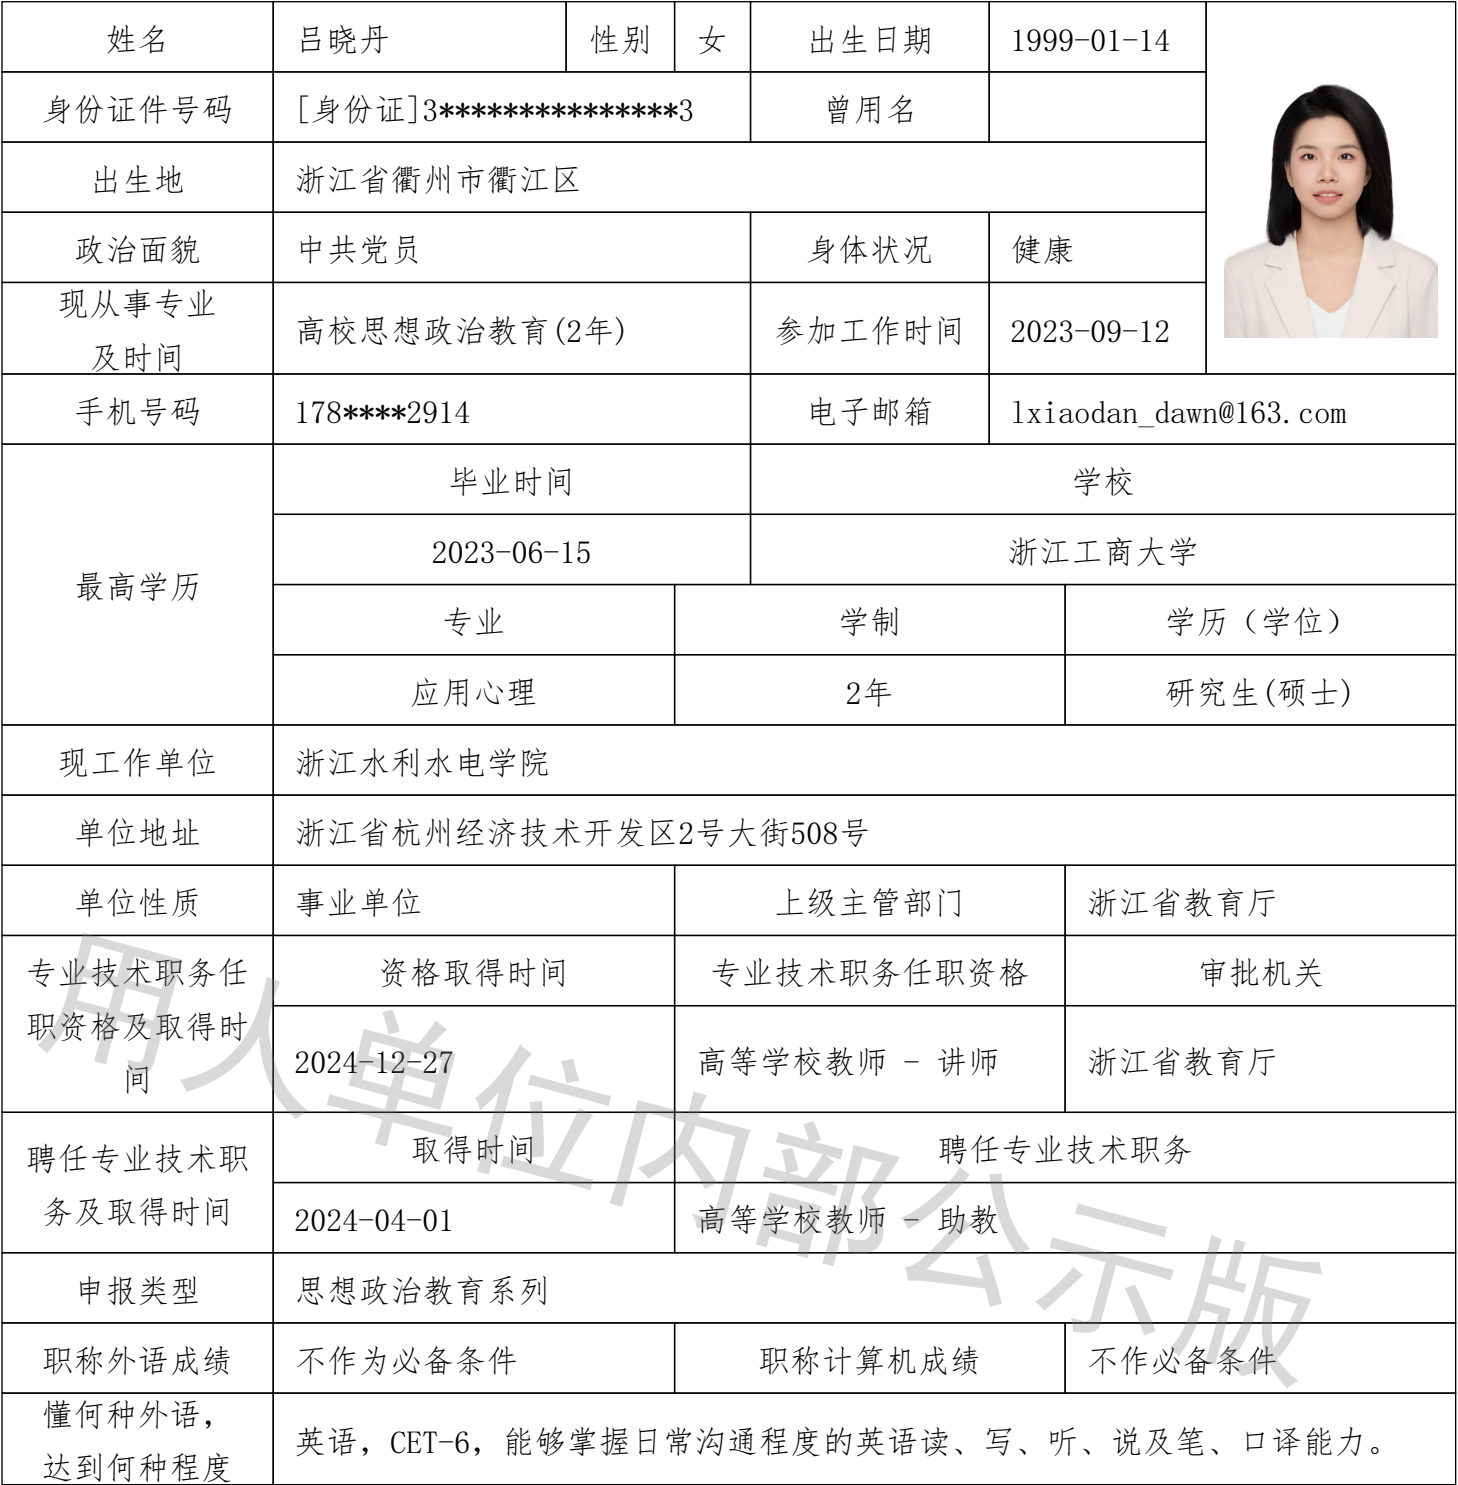 姓名 吕晓丹 性别 女 出生日期 1999-01-14
身份证件号码 [身份证]3***************3 曾用名
出生地 浙江省衢州市衢江区
政治面貌 中共党员 身体状况 健康
现从事专业
及时间
高校思想政治教育(2年) 参加工作时间 2023-09-12
手机号码 178****2914 电子邮箱 lxiaodan_dawn@163.com
最高学历
毕业时间 学校
2023-06-15 浙江工商大学
专业 学制 学历（学位）
应用心理 2年 研究生(硕士)
现工作单位 浙江水利水电学院
单位地址 浙江省杭州经济技术开发区2号大街508号
单位性质 事业单位 上级主管部门 浙江省教育厅
专业技术职务任
职资格及取得时
间
资格取得时间 专业技术职务任职资格 审批机关
2024-12-27 高等学校教师 - 讲师 浙江省教育厅
聘任专业技术职
务及取得时间
取得时间 聘任专业技术职务
2024-04-01 高等学校教师 - 助教
申报类型 思想政治教育系列
职称外语成绩 不作为必备条件 职称计算机成绩 不作必备条件
懂何种外语，
达到何种程度
英语，CET-6，能够掌握日常沟通程度的英语读、写、听、说及笔、口译能力。
用人单位内部公示版